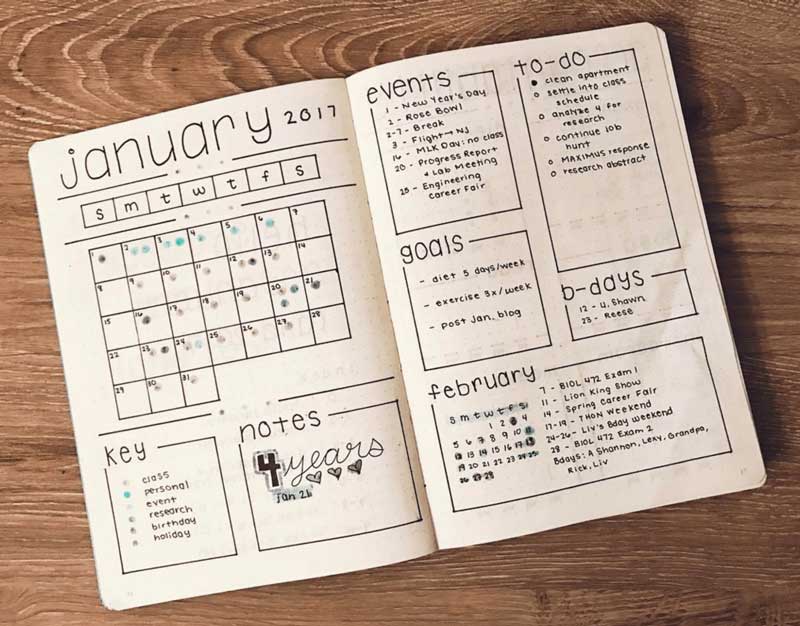 january 2017
s m t w t f s
1 2 3 4 5 6 7
8 9 10 11 12 13 14
15 16 17 18 19 20 21
22 23 24 25 26 27 28
29 30 31
key
class
personal
event
research
birthday
holiday
notes
4 years
Jan 21
events
1 - New Year's Day
2 - Rose Bowl
2-7 - Break
3 - Flight → NJ
16 - MLK Day: no class
20 - Progress Report
& Lab Meeting
25 - Engineering
career Fair
goals
- diet 5 days/week
- exercise 3x/week
- post Jan. blog
to-do
clean apartment
settle into class
schedule
analyze 4 for
research
continue job
hunt
MAXIMUS response
research abstract
b-days
12 - U. Shawn
23 - Reese
february
S m t w t f s
1 2 3 4
5 6 7 8 9 10 11
12 13 14 15 16 17 18
19 20 21 22 23 24 25
26 27 28
7 - BIOL 472 Exam 1
11 - Lion King Show
14 - Spring Career Fair
17-19 - THON Weekend
24-26 - Liv's Bday Weekend
28 - BIOL 472 Exam 2
Bdays: A Shannon, Lexy, Grandpa,
Rick, Liv